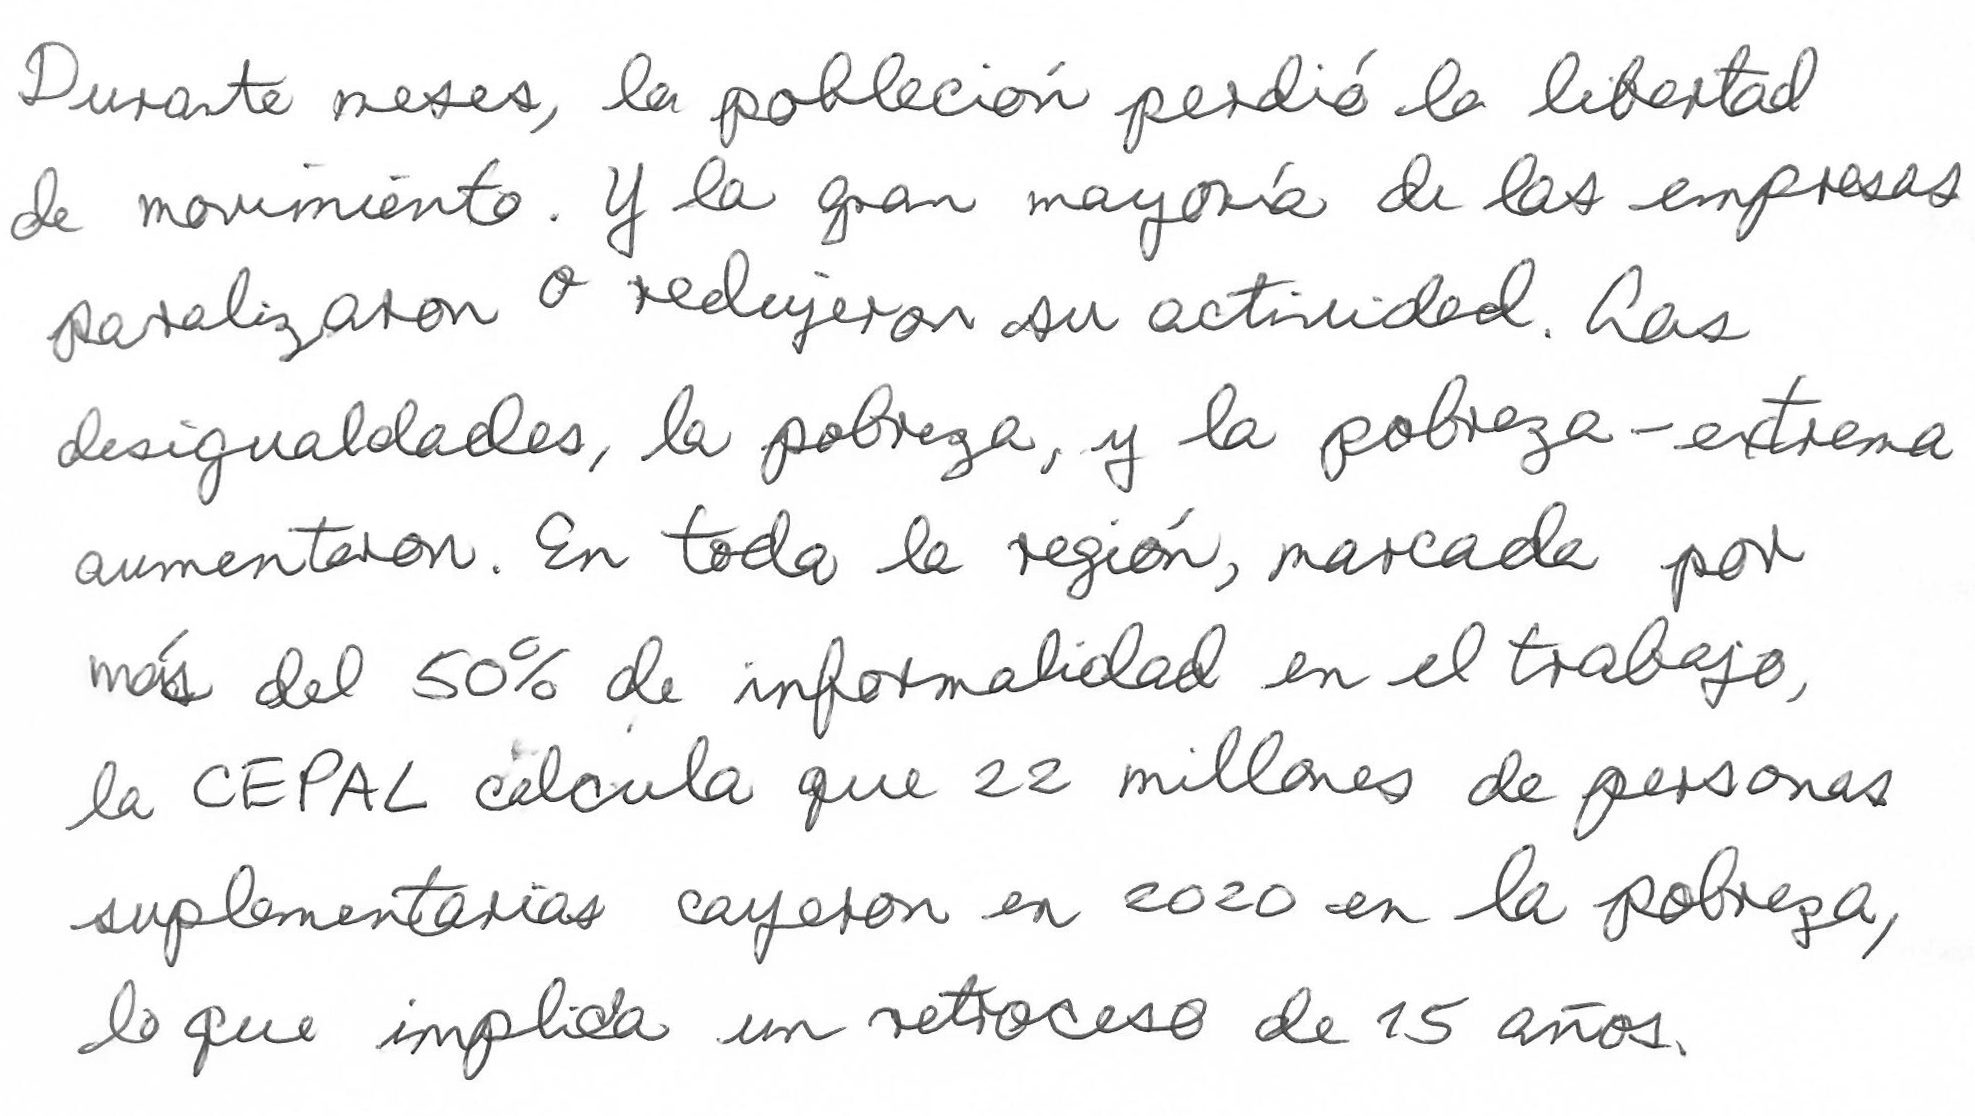 Durante meses, la población perdió la libertad
de movimiento. Y la gran mayoría de las empresas
paralizaron o redujeron su actividad. Las
desigualdades, la pobreza, y la pobreza-extrema
aumentaron. En toda la región, marcada por
más del 50% de informalidad en el trabajo,
la CEPAL calcula que 22 millones de personas
suplementarias cayeron en 2020 en la pobreza,
lo que implica un retroceso de 15 años.